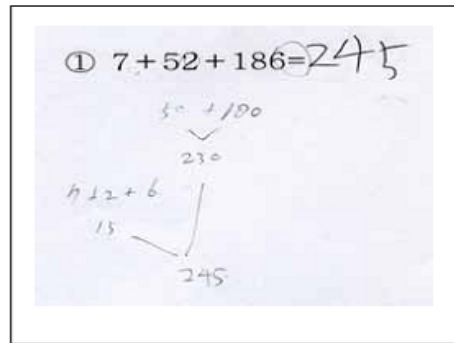 ① 7+52+186=245
50 +180
230
7+2+6
15
245